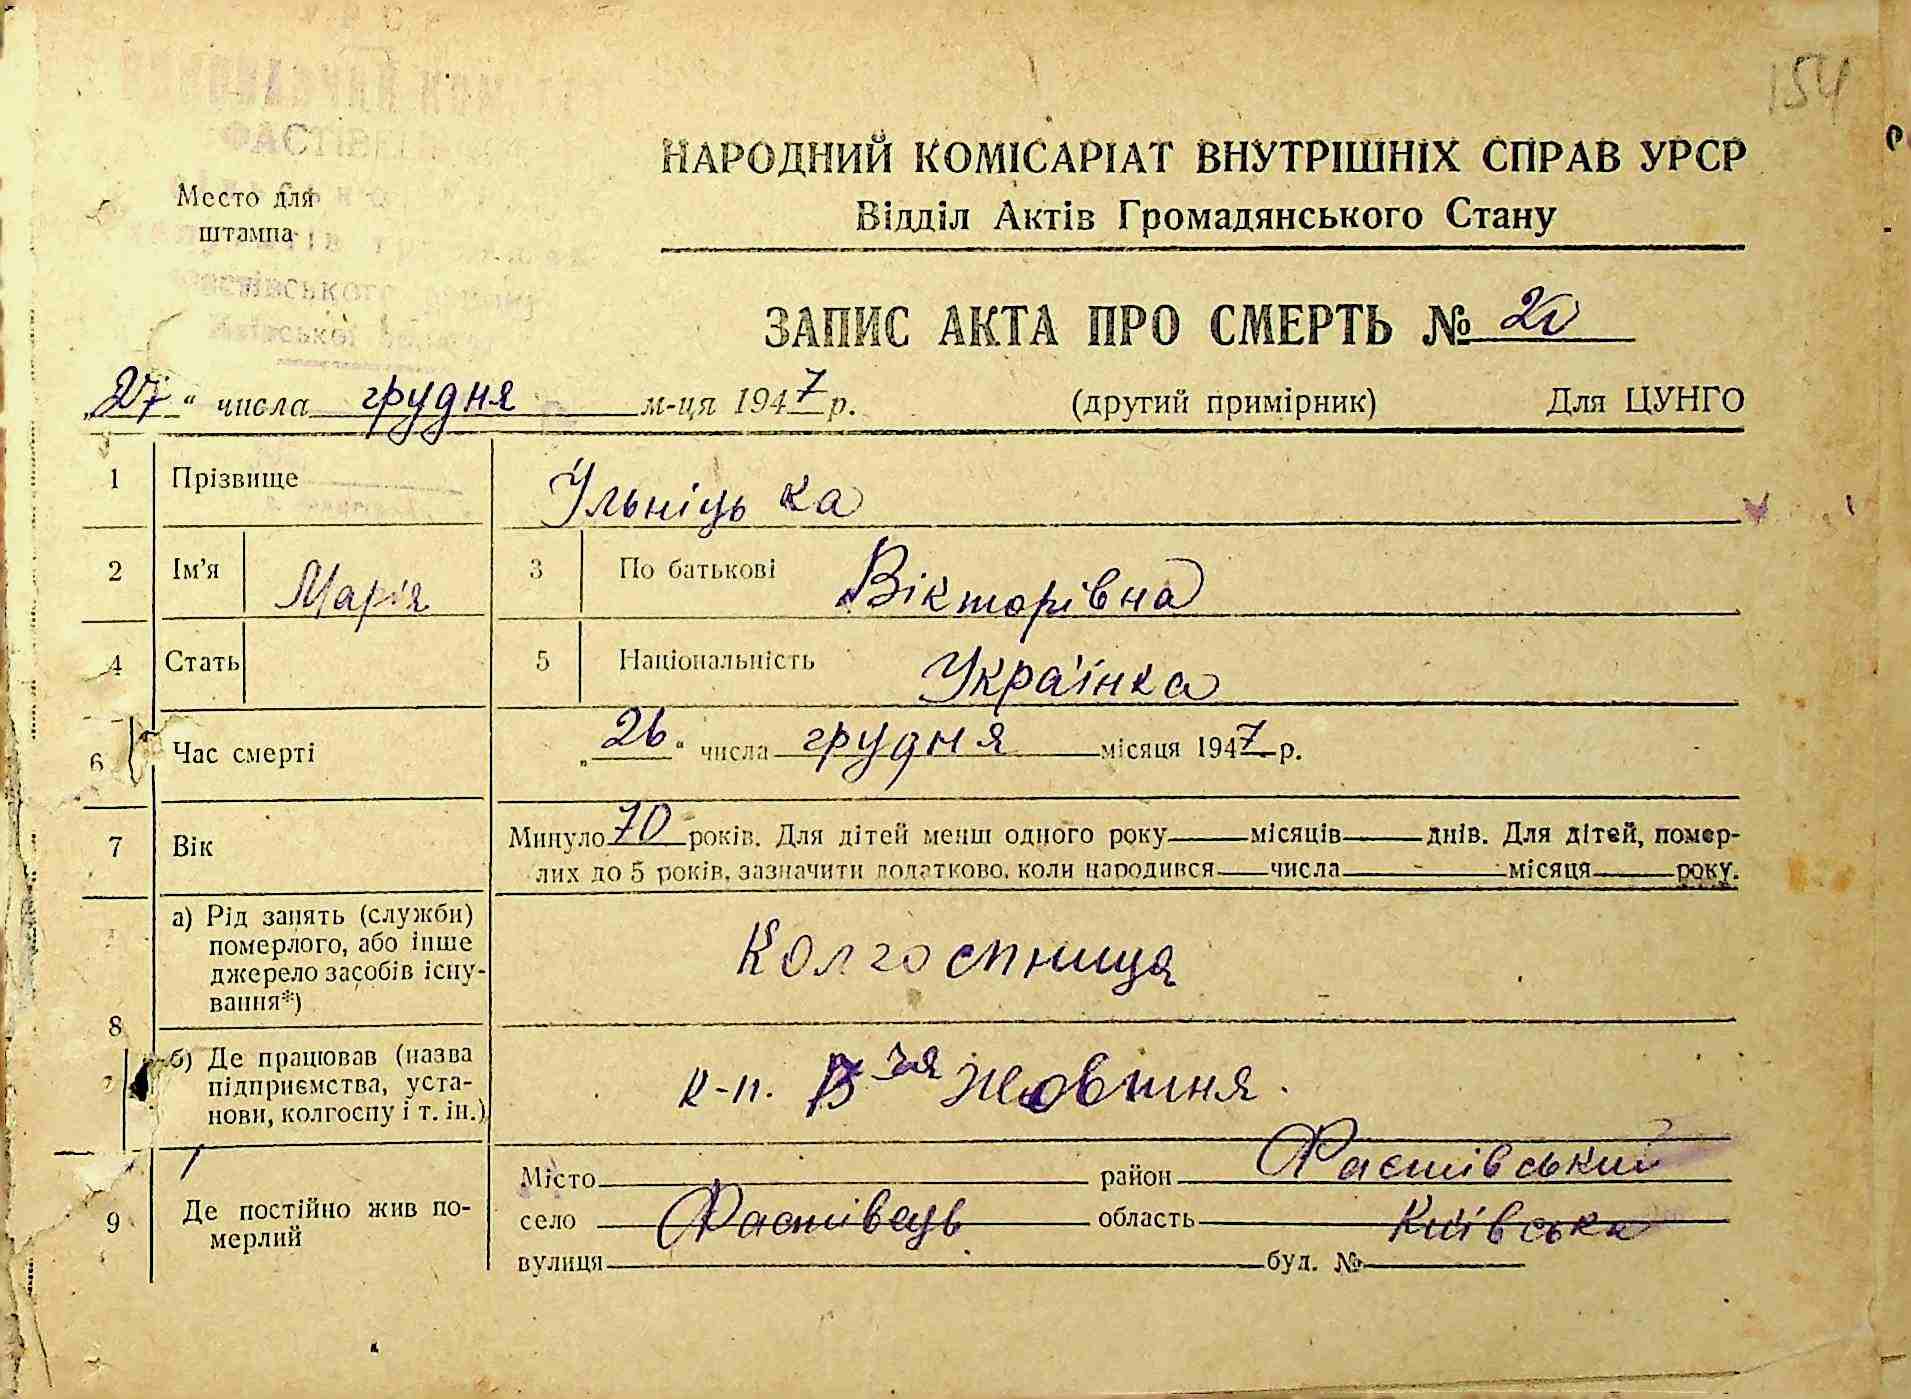 154
НАРОДНИЙ КОМІСАРІАТ ВНУТРІШНІХ СПРАВ УРСР
Відділ Актів Громадянського Стану
ФАСТІВ
Место для
штампа
ЗАПИС АКТА ПРО СМЕРТЬ № 20
„27“ числа грудня м-ця 1947 р. (другий примірник) Для ЦУНГО
1 Прізвище Ільніцька
2 Ім’я Марія 3 По батькові Вікторівна
4 Стать 5 Національність Українка
6 Час смерті „26“ числа грудня місяця 1947 р.
7 Вік Минуло 70 років. Для дітей менш одного року місяців днів. Для дітей, помер-
лих до 5 років, зазначити додатково, коли народився числа місяця року.
8 а) Рід занять (служби)
померлого, або інше
джерело засобів існу-
вання*)
Колгоспниця
б) Де працював (назва
підприємства, уста-
нови, колгоспу і т. ін.)
к-п. Жовтня.
9 Де постійно жив по-
мерлий
Місто район Фастівський
село Фастівець область Київська
вулиця буд. №